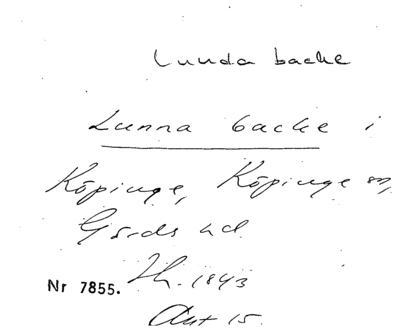 Lunda backe
Lunna backe i
Köpinge, Köpinge sn,
Gärds hd
Nr 7855. Lh. 1843
Akt 15.